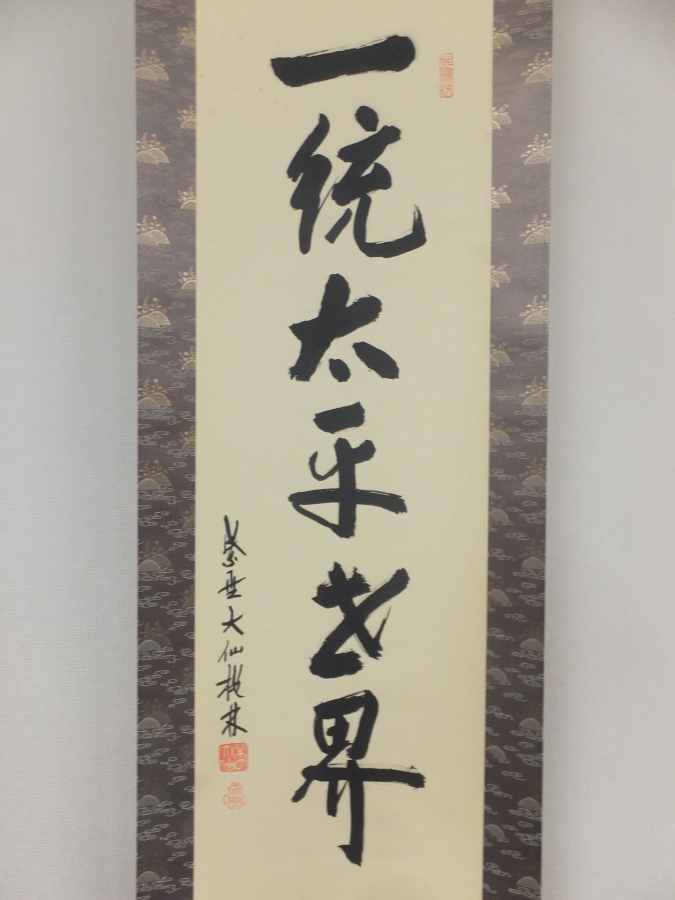 一統太平世界
紫野大仙桃林